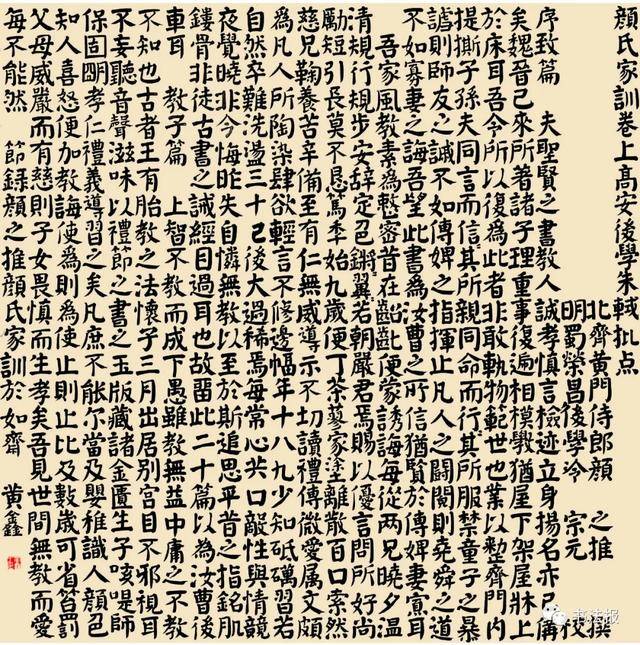 顏氏家訓卷上高安後學朱軾批点
北齊黃門侍郎顏之推撰
明蜀榮昌後學冷宗元校
序致篇 夫聖賢之書教人誠孝慎言檢迹立身揚名亦已備
矣魏晉已來所著諸子理重事復遞相模斆猶屋下架屋牀上
於床耳吾今所以復為此者非敢軌物範世也業以整齊門內
提撕子孫夫同言而信其所親同命而行其所服禁童子之暴
謔則師友之誡不如傅婢之指揮止凡人之鬪鬩則堯舜之道
不如寡妻之誨吾望此書為汝曹之所信猶賢於傅婢妻寡耳
吾家風教素為整密昔在齠齔便蒙誘誨每從兩兄曉夕溫
清規行規步安辭定色鏘翼若朝嚴君焉賜以優言問所好尚
勵短引長莫不懇篤年始九歲便丁荼蓼家塗離散百口索然
慈兄鞠養苦辛備至有仁無威導示不切讀禮傳微愛属文頗
為凡人所陶染肆欲輕言不修邊幅年十八九少知砥礪習若
自然卒難洗盪三十已後大過稀焉每常心共口敵性與情競
夜覺曉非今悔昨失自憐無教以至於斯追思平昔之指銘肌
鏤骨非徒古書之誡經目過耳也故留此二十篇以為汝曹後
車耳 教子篇 上智不教而成下愚雖教無益中庸之不教
不知也古者王有胎教之法懷子三月出居別宮目不邪視耳
不妄聽音聲滋味以禮節之書之玉版藏諸金匱生子咳㖷師
保固明孝仁禮義導習之矣凡庶不能尔當及嬰稚識人顏色
知人喜怒便加教誨使為則為使止則止比及數歲可省笞罰
父母威嚴而有慈則子女畏慎而生孝矣吾見世間無教而愛
每不能然 節錄顏之推顏氏家訓於如齋 黃鑫
书法报